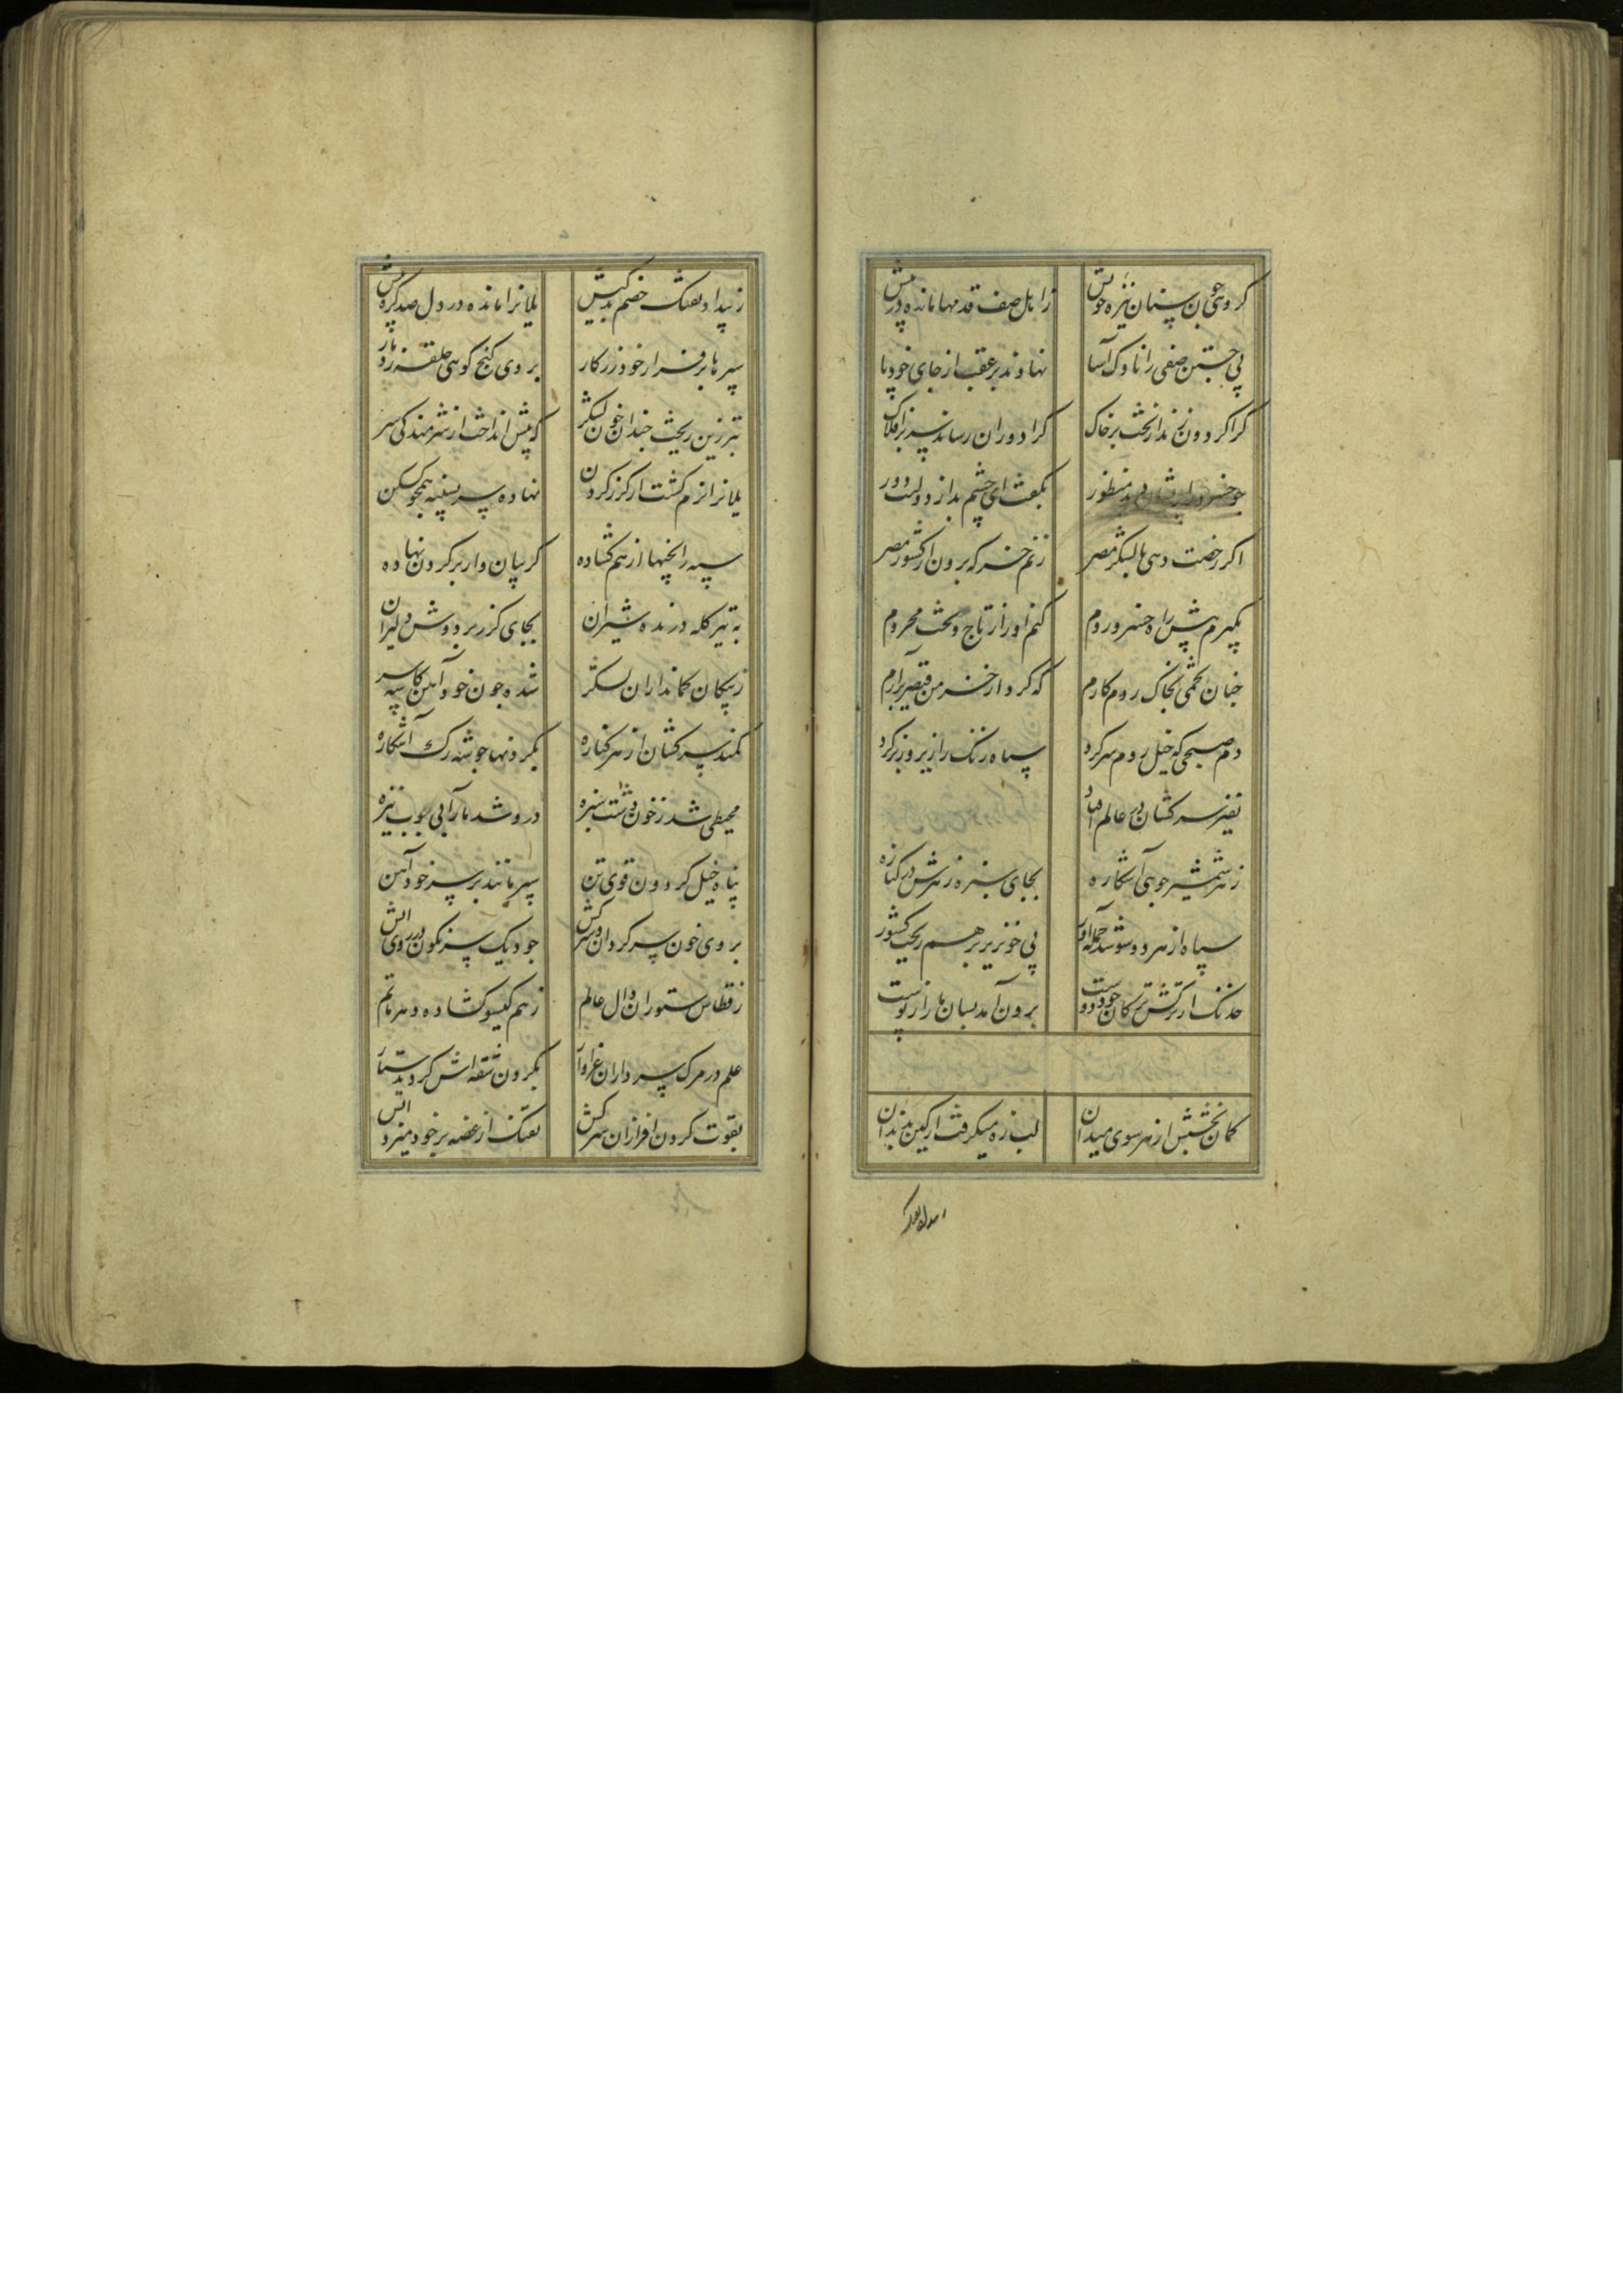 گروهی چون سنان نیزه خویش ز اهل صف قدمها مانده در پیش
پی جستن صفی را ناوک آسا نهادند بر عقب از جای خود پا
کرا گردون زند از تخت بر خاک کرا دوران رساند سر بر افلاک
چو خسرو را بشان دید منظور بگفت ای چشم بد از دولتت دور
اگر رخصت دهی با لشکر مصر زنم خرگه برون از کشور مصر
بگیرم پیش راه خسرو روم کنم او را ز تاج و تخت محروم
چنان تخمی بخاک روم کارم که گرد از خرمن قیصر برآرم
دم صبحی که خیل روم سر کرد سپاه زنگ را زیر و زبر کرد
نفیر سرکشان در عالم افتاد
ز هر شمشیر جوی آشکاره بجای سبزه زهرش در کناره
سپاه از هر دو سو شد حمله‌آور پی خونریز بر هم ریخت کشور
خدنگ از ترکش ترکان چو دست برون آمد بسان مار از پوست
کمان تخشش از هر سوی میدان لب زه میگرفت از کین بدندان
ز بیداد تفنگ خصم بدکیش یلانرا مانده در دل صد گره بیش
سپرها بر فراز خود زرکار بروی گنج گوهی حلقه زد مار
تبرزین ریخت چندان خون لشکر که پیش انداخت از شرمندگی سر
یلانرا نرم گشت از گرز گردن نهاده سر بسینه همچو مسکن
سپه را پنجها از هم گشاده گریبان وار بر گردن نهاده
به تیر کله درنده شیران بجای گرز بر دوش دلیران
ز پیکان کمانداران لشکر شده چون خود آهن کاسه سر
کمند سرکشان از هر کناره بگردنها چو شه رگ آشکاره
محیطی شد ز خون دشت ستیزه درو شد مار آبی چوب نیزه
پناه خیل گردون قوی تن سپر مانند بر سر خود آهن
بروی خون سر گردان سرکش چو دیک سرنگون در روی آتش
ز قطاس ستوران وال عالم ز هم گیسو گشاده دهر ماتم
علم در مرگ سرداران بگردن شقه‌اش گردید دستار
بقوت گردن افرازان سرکش تفنگ از غصه بر خود میزد آتش